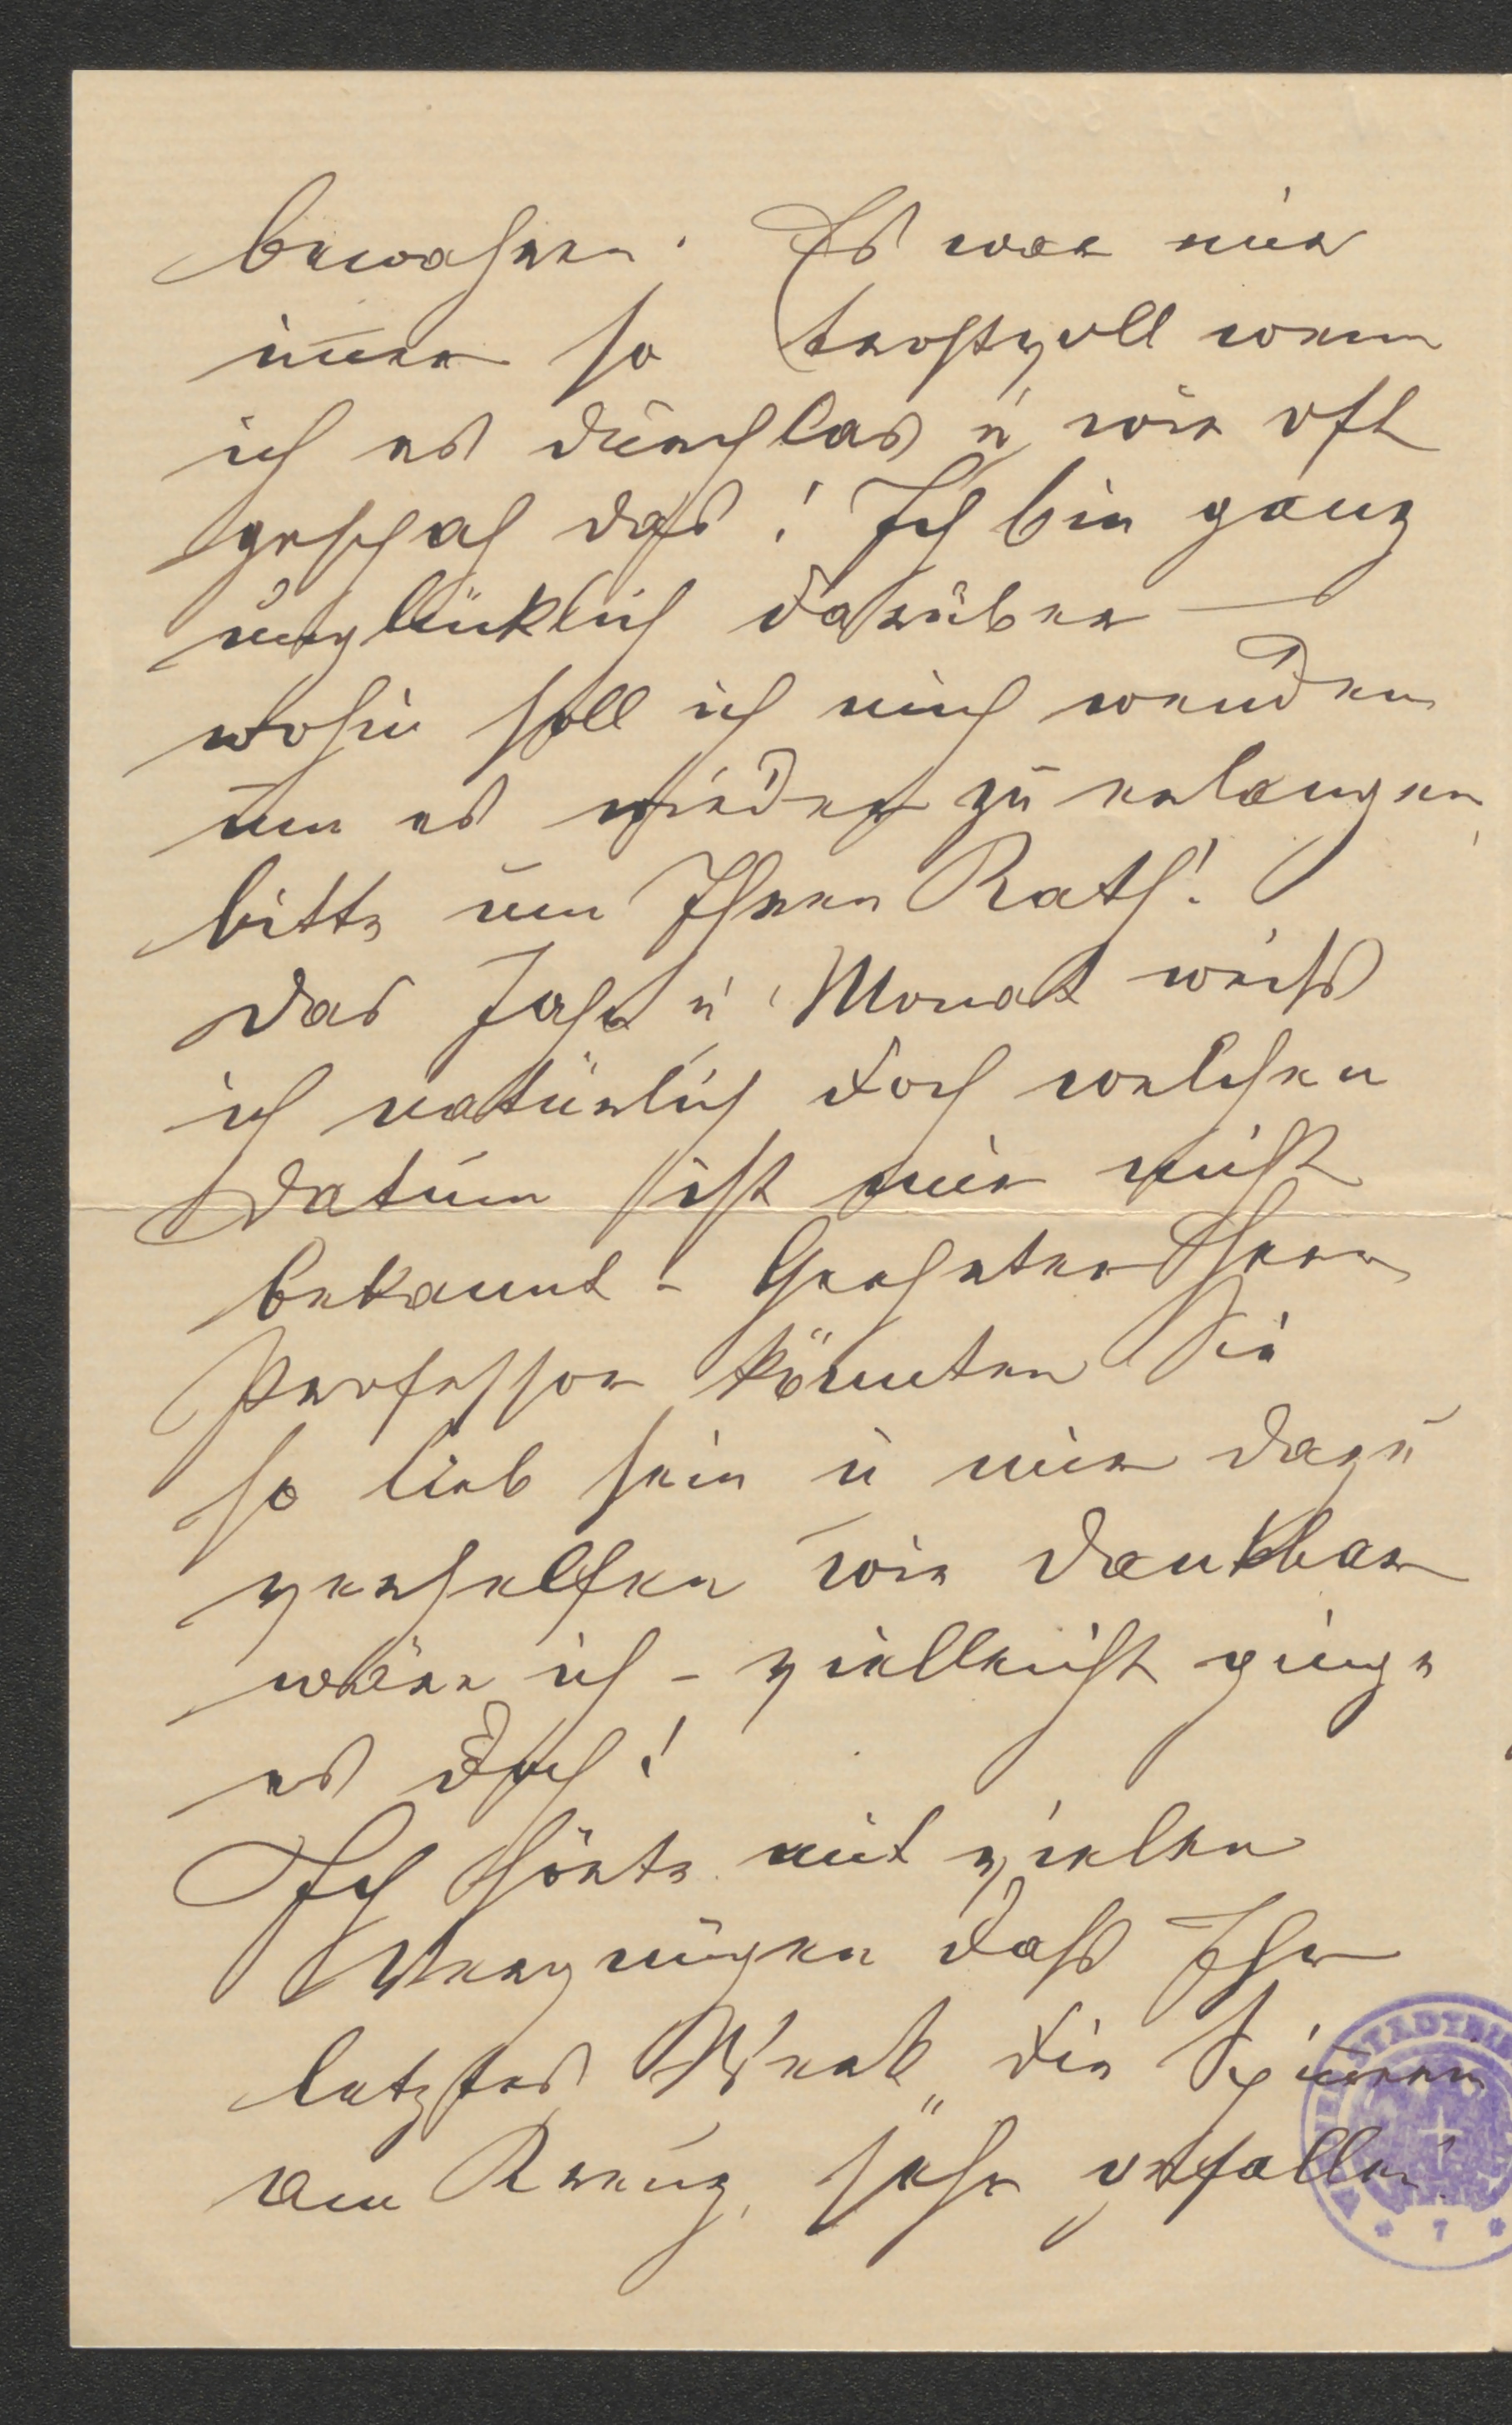 bewahren. Es war mir
im̄er so trostvoll wenn
ich es durchlas u wie oft
geschah das! Ich bin ganz
unglücklich darüber —
wohin soll ich mich wenden
um es wieder zu erlangen,
bitte um Ihren Rath!
Das Jahr u Monat weiß
ich natürlich doch welchen
Datum ist mir nicht
bekannt - Geehrter Herr
Professor könnten Sie
so lieb sein u mir dazu
verhelfen wie dankbar
wäre ich - vielleicht ginge
es doch!
Ich hörte mit vielen
Vergnügen daß Ihr
letztes Werk "die
am Kreuz, sehr gefallen
* 7 *